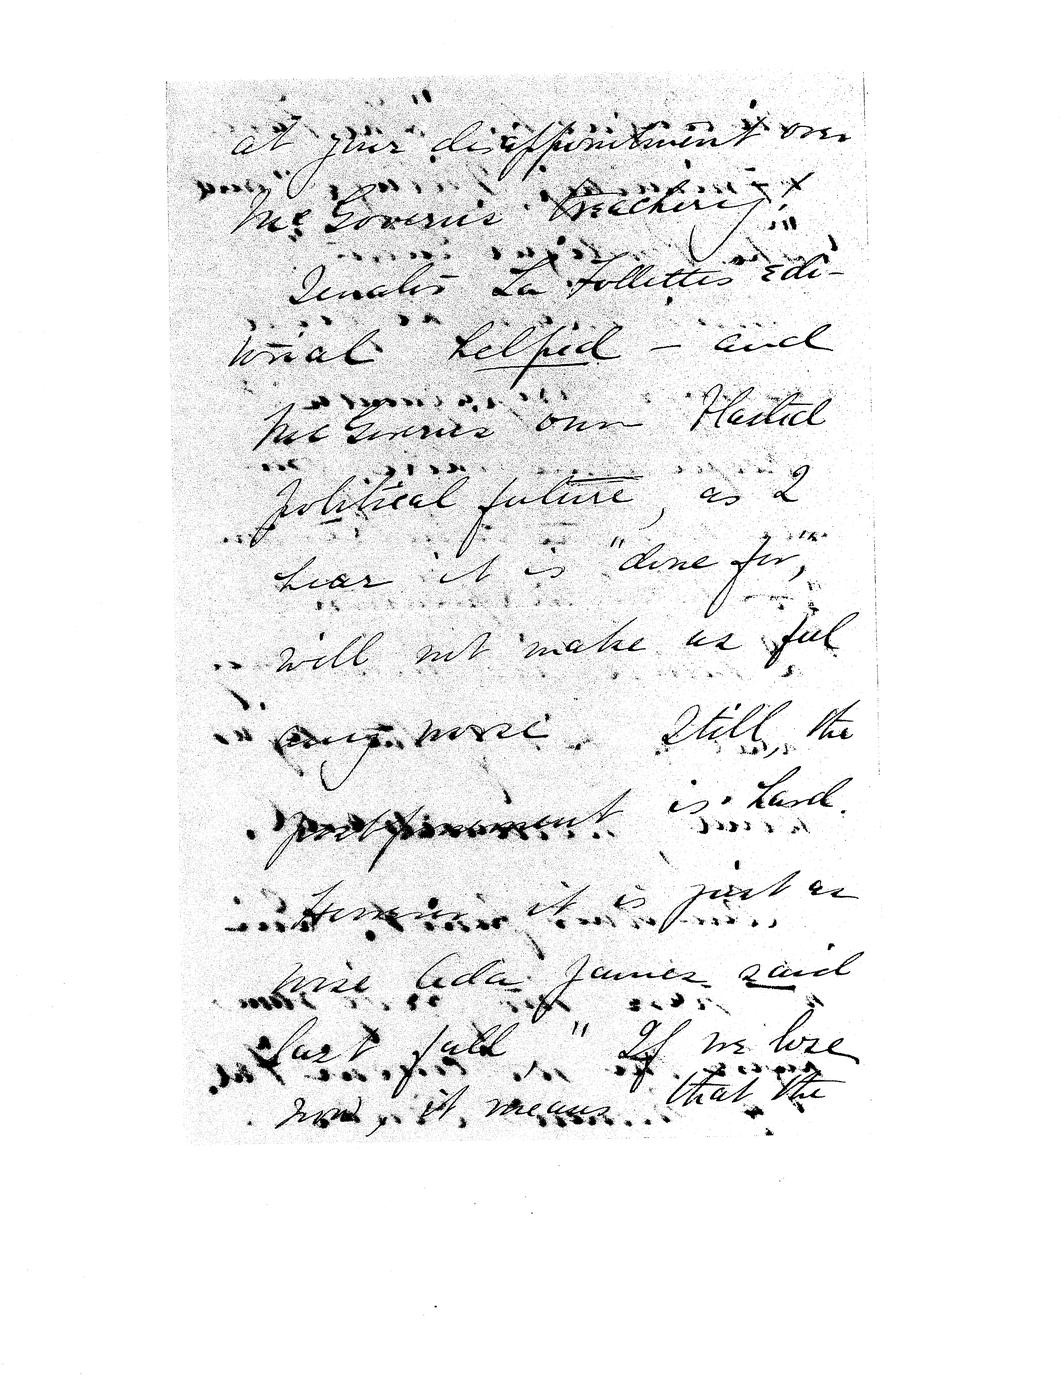 at your disappointment over
McGovern's treachery!
Senator La Follette's edi-
torial helped - and
McGovern's own blasted
political future, as I
hear it is "done for,"
will not make us feel
any worse. Still, the
postponement is hard.
However it is just as
wise Ada James said
last fall "If we lose
now, it means that the